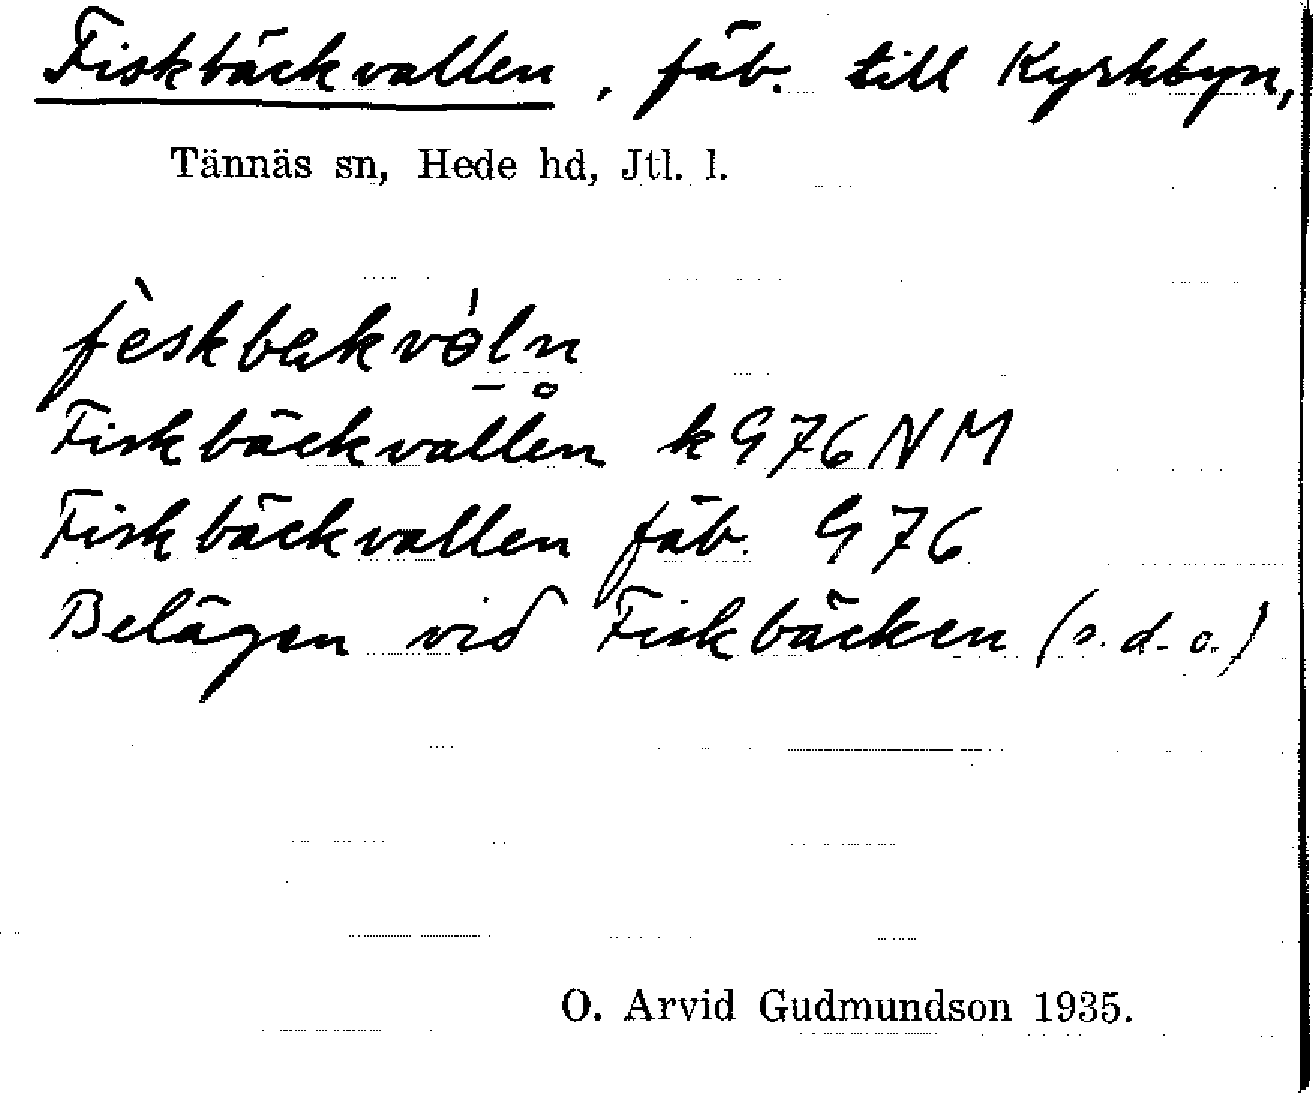 Fiskbäckvallen, fäb. till Kyrkbyn,
Tännäs sn, Hede hd, Jtl. l.
Fiskbäckvallen k G76 NM
Fiskbäckvallen fäb. G76
Belägen vid Fiskbäcken (s.d.o.)
O. Arvid Gudmundson 1935.